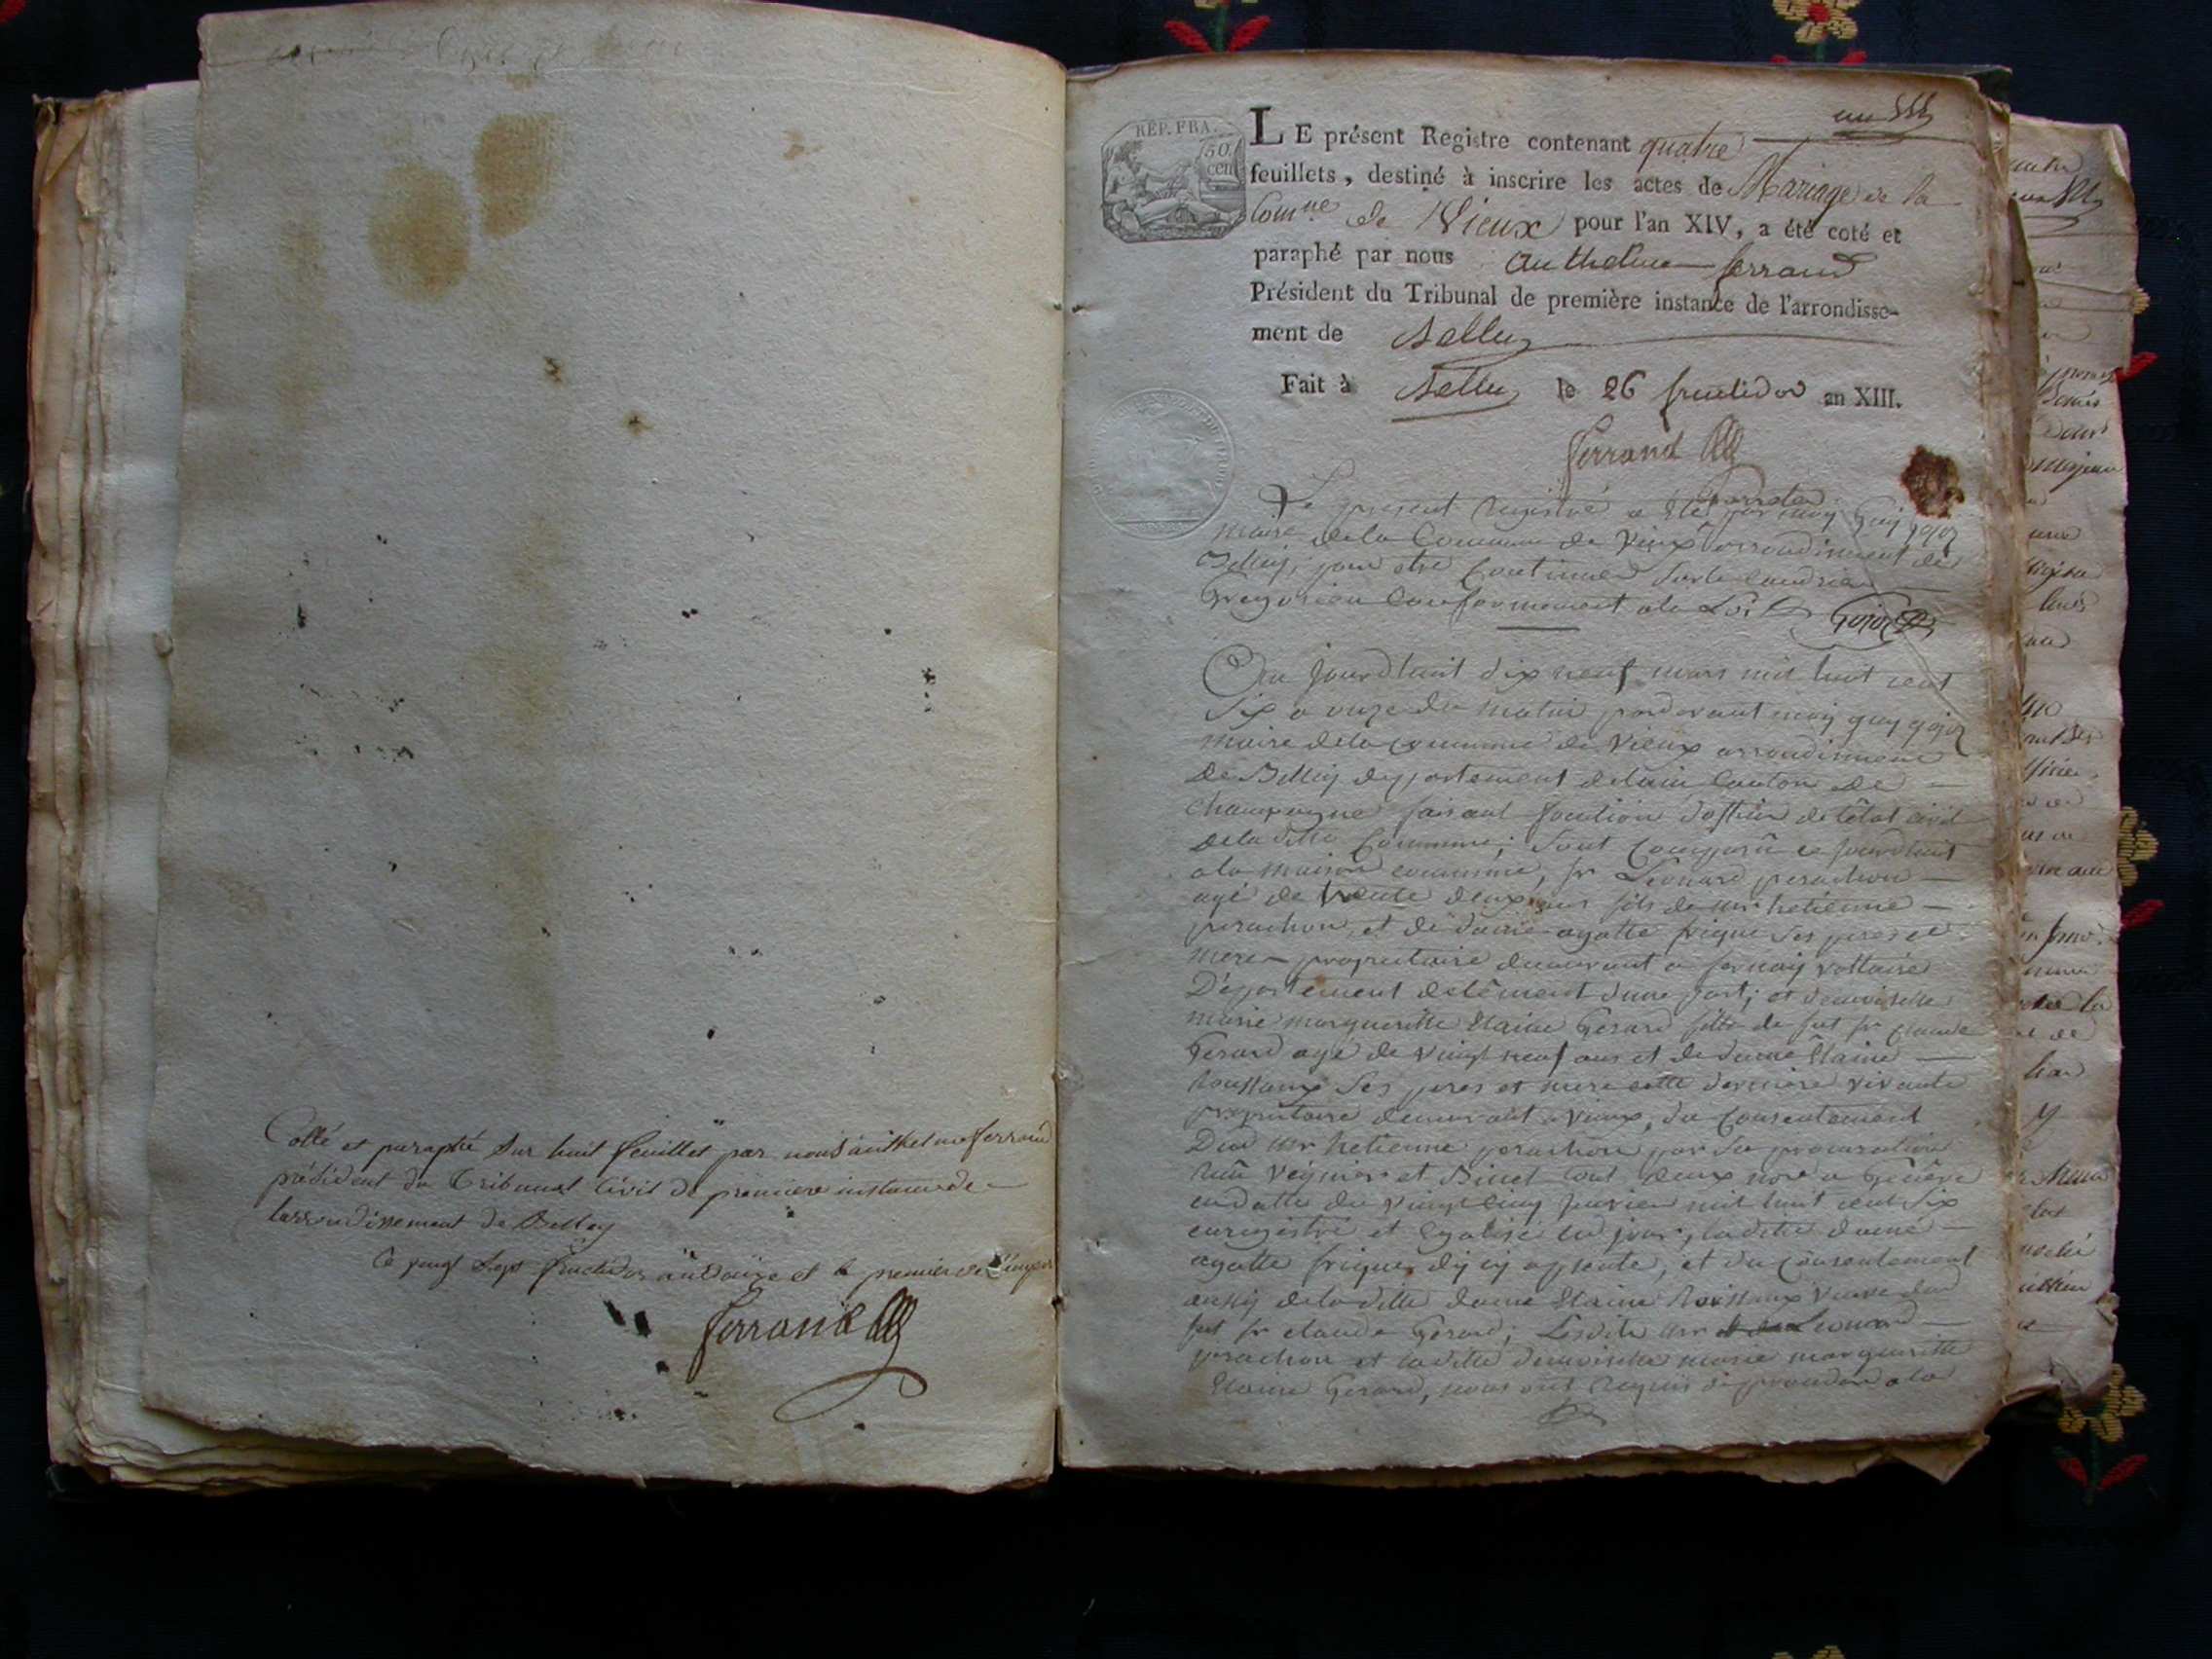 Collé et paraphé sur huit feuillet par nous anthelme ferrand
président du Tribunal Civil de premiere instance de
larrondissement de Belley
Ce vingt sept fructidor an douze et le premier de
ferrand
un
REP. FRA.
50 cen
LE présent Registre contenant quatre
feuillets, destiné à inscrire les actes de Mariage de la
Comne de Vieux pour l'an XIV, a été coté et
paraphé par nous Anthelme ferrand
Président du Tribunal de première instance de l'arrondisse-
ment de Belley
Fait à Belley le 26 fructidor an XIII.
ferrand
Le present registre a été par moy Guy gojoz
maire de la Commune de Vieux arrondissement de
Belley, pour etre Continuer sur le
Gregorien Conformement ala Loi
Gojoz
Au jourdhuit dix neuf mars mil huit cent
Six a onze du matin pardevant moy guy gojoz
maire dela commune de Vieux arrondissement
de Belley departement delain Canton de
champagne faisant fonction dofficier de létat civil
dela ditte Commune; Sont comparû ce jourdhuit
ala maison commune, sr Leonard perachon
agé de trente deux ans fils de mr hetienne
perachon, et de dame agatte frique ses peres et
mere propriétaire demeurant a fernay voltaire
Département delément dune part; et demoiselle
marie margueritte Elaine Gerard fille de fut sr claude
Gerard agé de vingt neuf ans et de dame Elaine
Roussaux Ses peres et mere cette derniere vivante
propriétaire demeurant a Vieux, du Consentement
Dud mr hetienne perachon par sa procuration
Veignier et Binet tout deux nore a Genêve
endatte du vingt cinq janvier mil huit cent six
enregistré et legalisé led jour, ladite dame
agatte frique, et du Consentement
aussy dela ditte dame Elaine Roussaux veuve dud
fut sr claude Gerard; Lesdits mr Leonard
perachon et laditte demoiselle marie margueritte
Elaine Gerard, nous ont requis de proceder ala